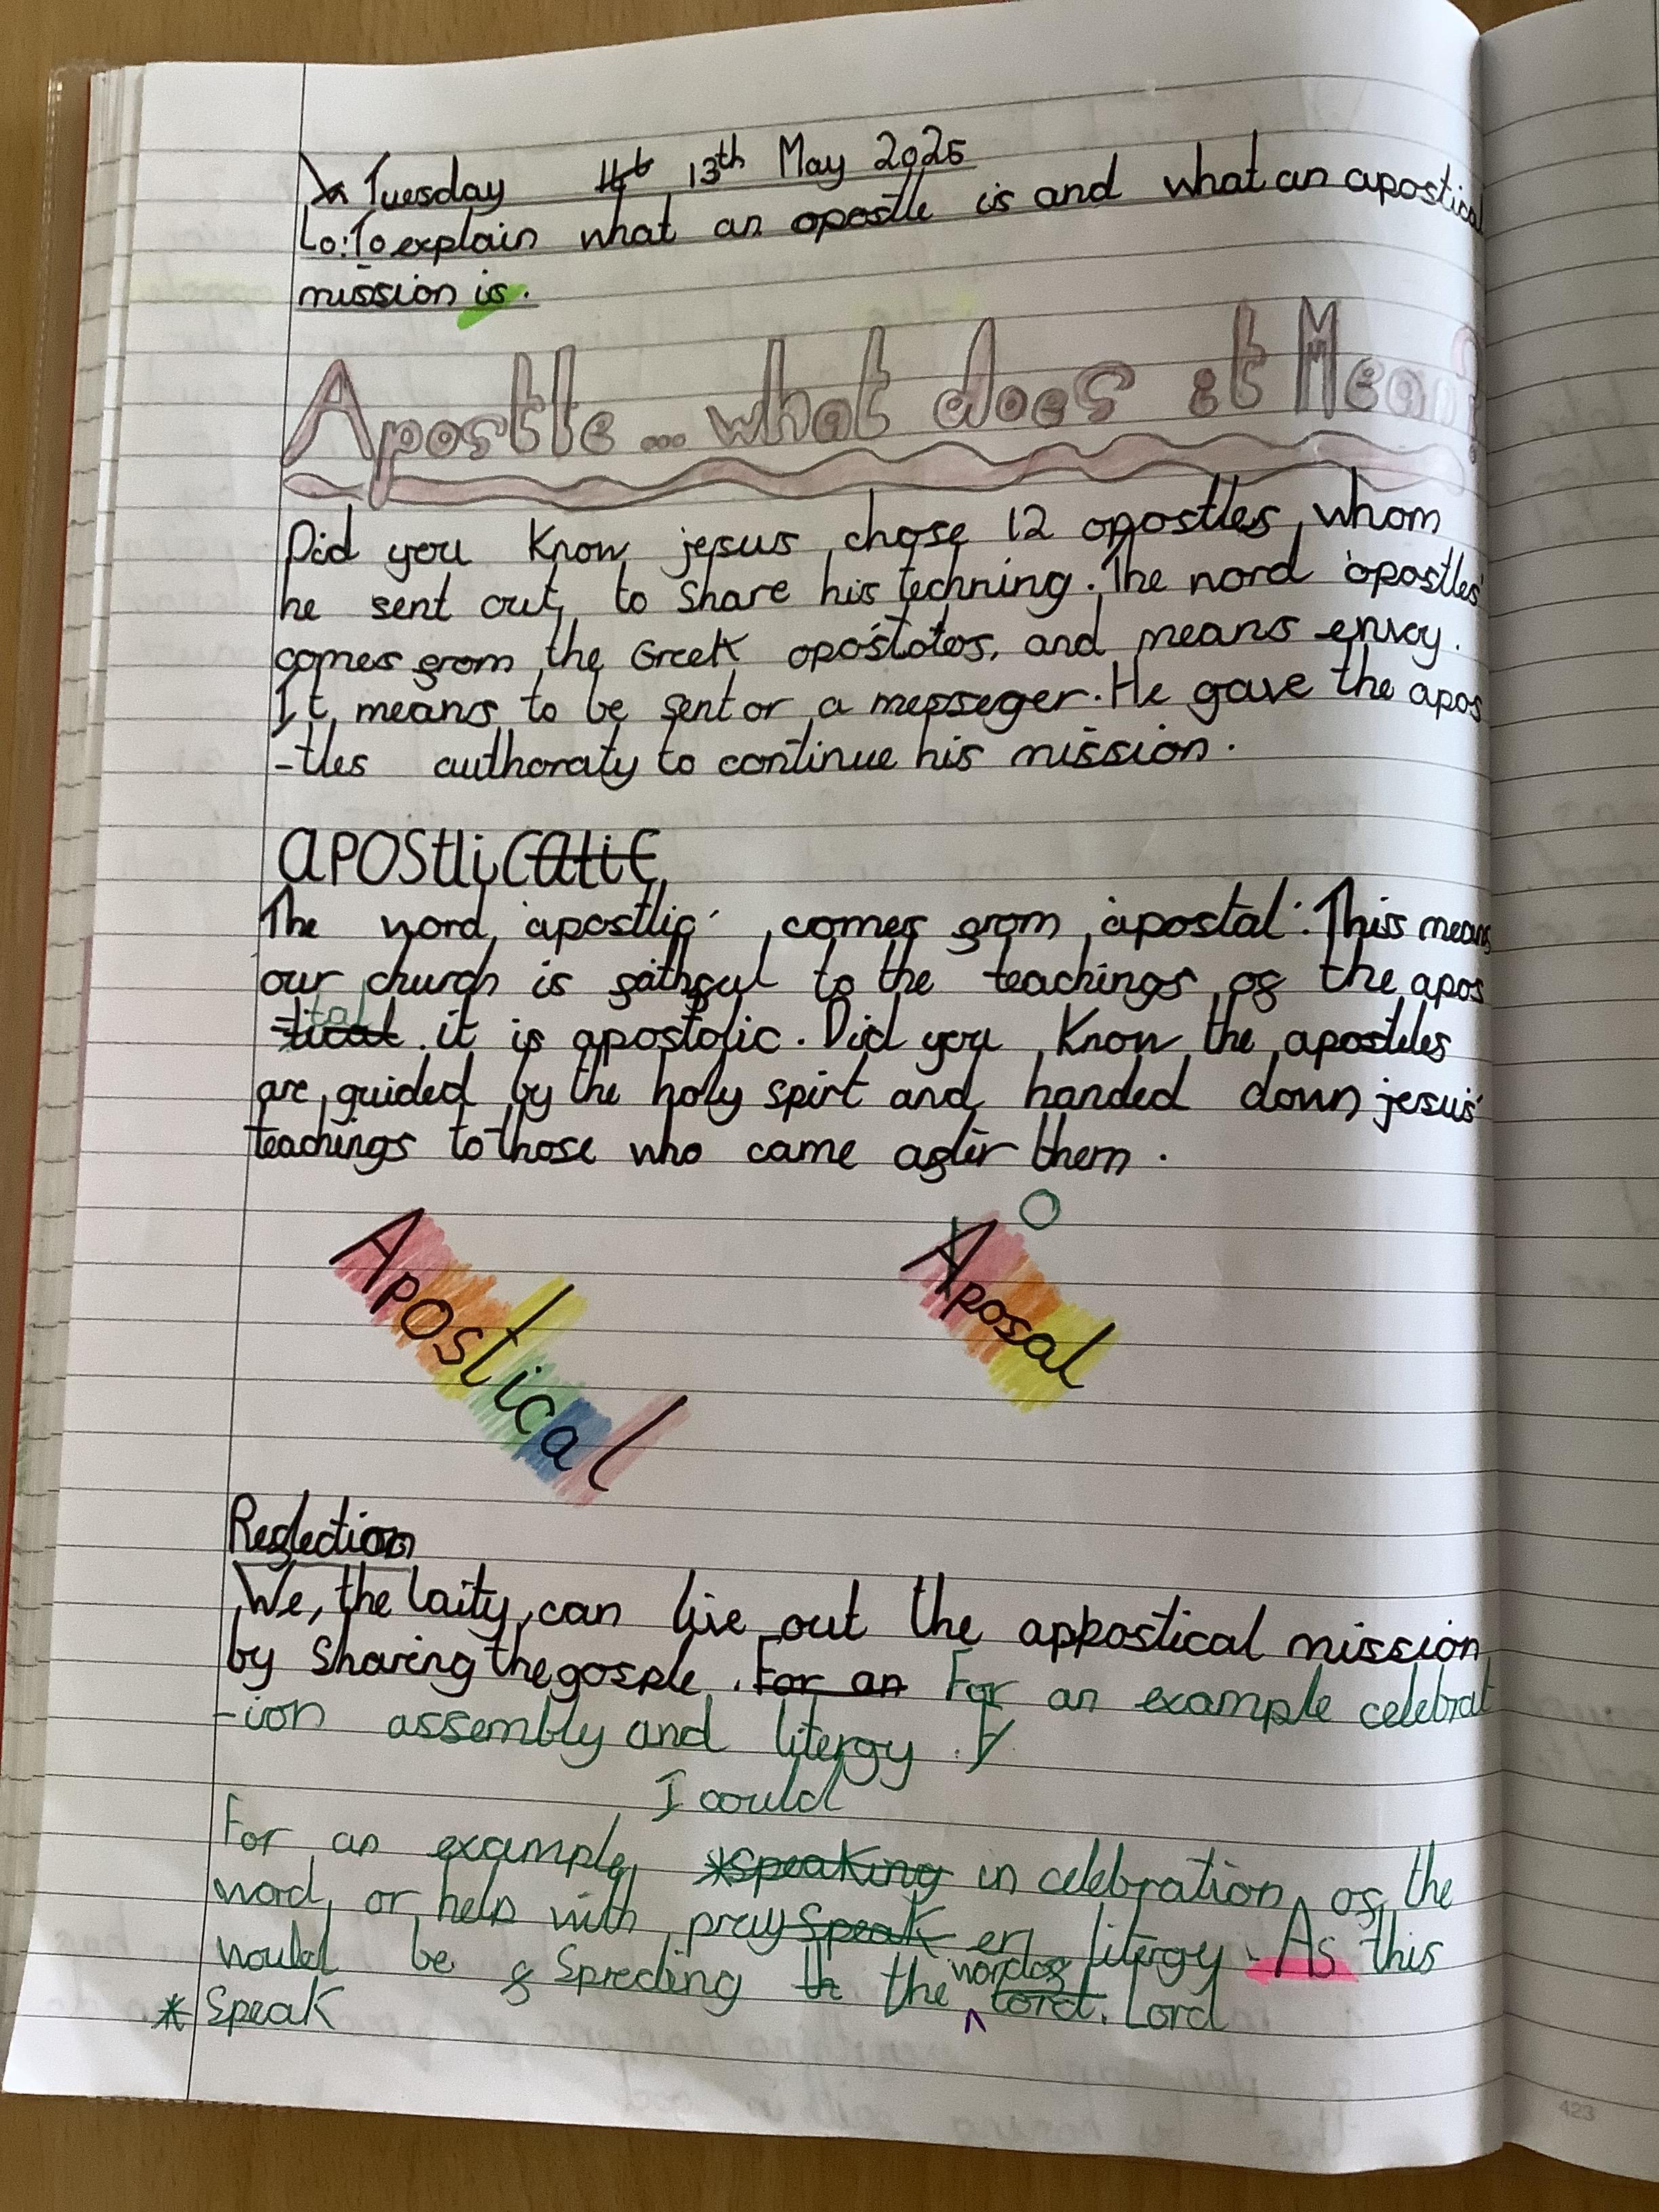 Tuesday 13th May 2025
Lo: To explain what an apostle is and what an apostical
mission is.
Apostle... what does it Mean?
Did you Know jesus chose 12 apostles, whom
he sent out, to share his techning. The word 'apostles'
comes from the Greek apóstolos, and means envoy.
It means to be sent or a messeger. He gave the apos
-tles authoraty to continue his mission.
APOStlicatic
The word 'apostlic' comes from 'apostal'. This means
our church is faithful to the teachings of the apos
tal
-tical. it is apostolic. Did you Know the apostles
are guided by the holy spirt and handed down jesus'
teachings to those who came after them.
O
Apostical Aposal
Reflection
We, the laity, can live out the appostical mission
by sharing the gosple. For an For an example celebrat
-ion assembly and litergy.
I could
For an example, *speaking in celebration of the
word, or help with pray speak er litergy. As this
words of
would be Spreding th the Lord. Lord
* Speak
423